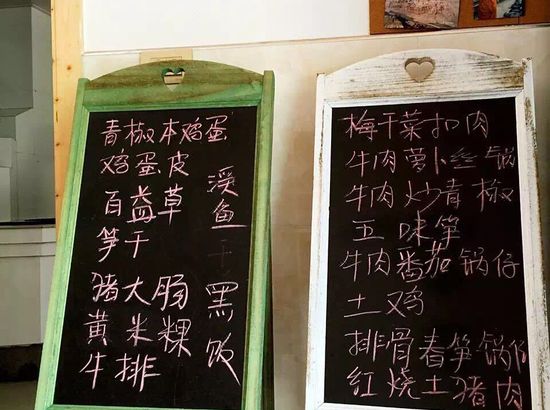 青椒本鸡蛋
鸡蛋皮
百益草
笋干
猪大肠
黄米粿
牛排
溪鱼干
黑饭
梅干菜扣肉
牛肉萝卜丝锅
牛肉炒青椒
五味笋
牛肉番茄锅仔
土鸡
排骨春笋锅仔
红烧土猪肉